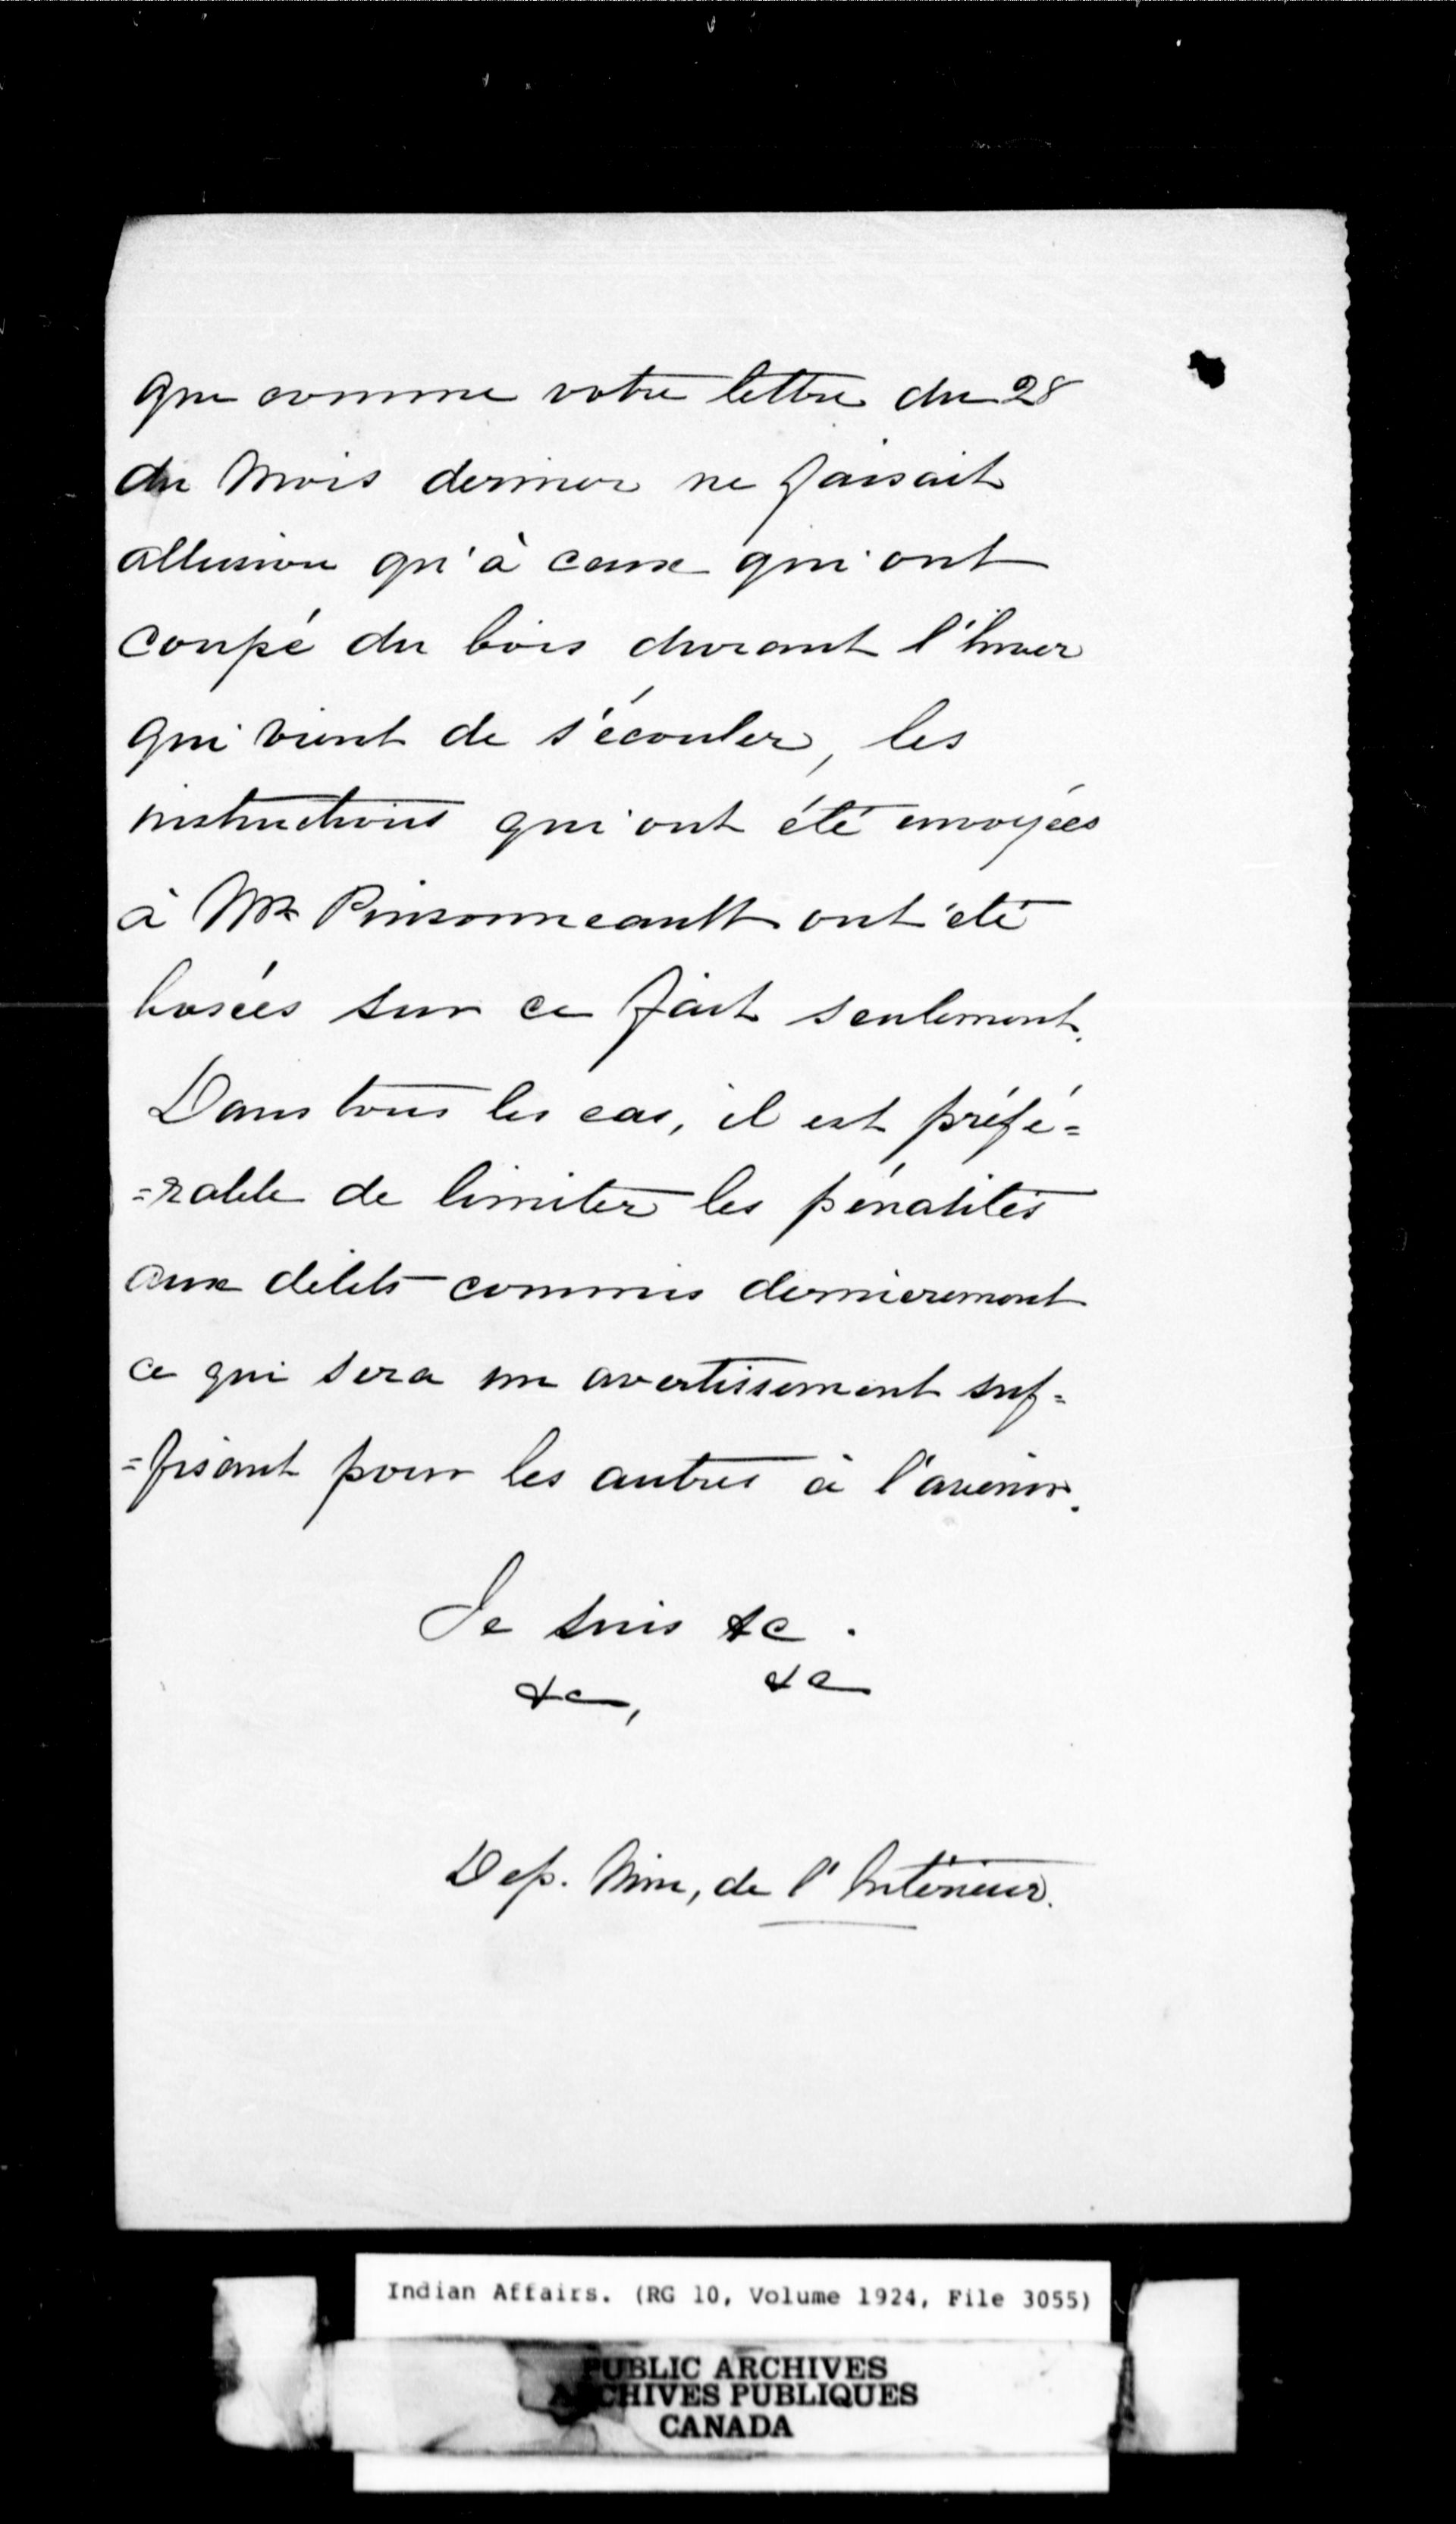 que comme votre lettre du 28
du Mois dernier ne faisait
allusion qu'à ceux qui ont
coupé du bois durant l'hiver
qui vient de s'écouler, les
instructions qui ont été envoyées
à Mr Pinsonneault ont été
basées sur ce fait seulement.
Dans tous les cas, il est préfé=
=rable de limiter les pénalités
aux délits commis dernierement
ce qui sera un avertissement suf=
=fisant pour les autres à l'avenir.
Je suis &c.
&c, &c
Dep. Min, de l'Intérieur.
Indian Affairs. (RG 10, Volume 1924, File 3055)
PUBLIC ARCHIVES
ARCHIVES PUBLIQUES
CANADA